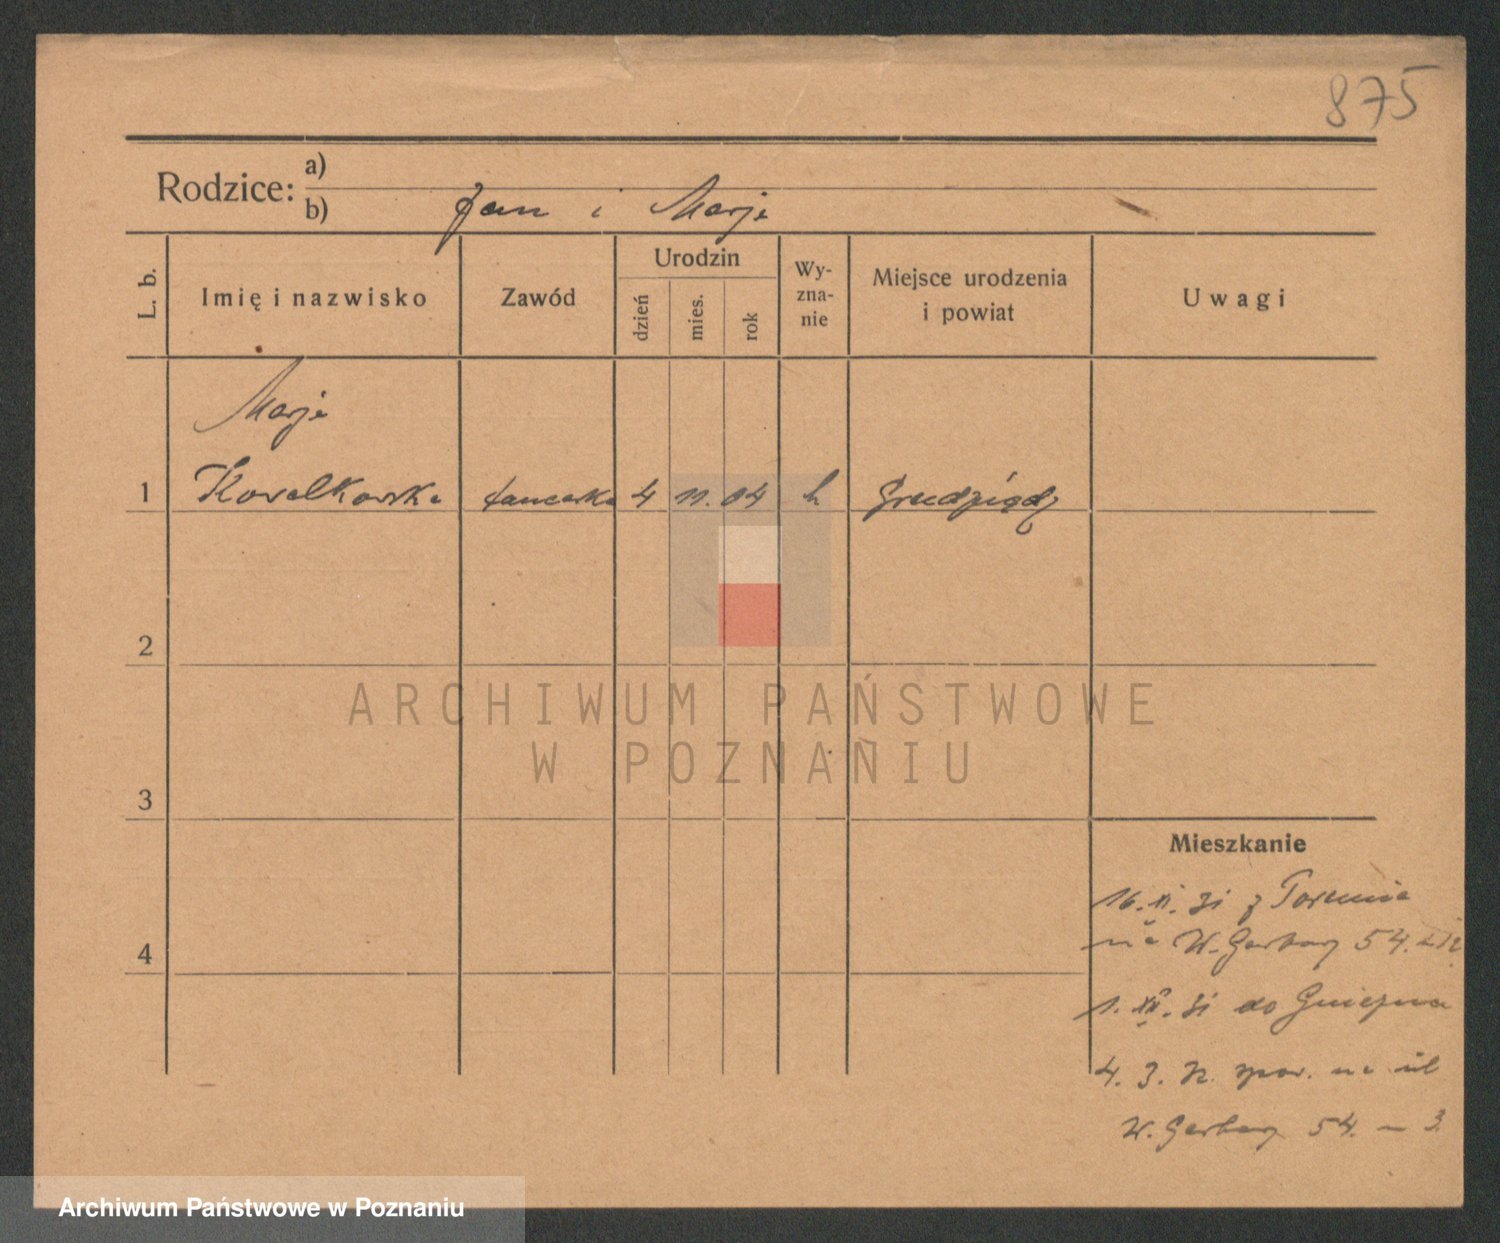 875
Rodzice: a)
b) Jan i Marja
L. b.
Imię i nazwisko
Zawód
Urodzin
dzień
mies.
rok
Wy-
zna-
nie
Miejsce urodzenia
i powiat
Uwagi
Marja
1 Kowalkowska tancerka 4 11. 04 k Grudziądz
2
3
4
Mieszkanie
16. XI. 31 z Torunia
na W. Garbary 54.
1. XII. 31 do Gniezna
4. 3. 32. spow. na ul
W. Garbary 54. – 3.
ARCHIWUM PAŃSTWOWE
W POZNANIU
Archiwum Państwowe w Poznaniu